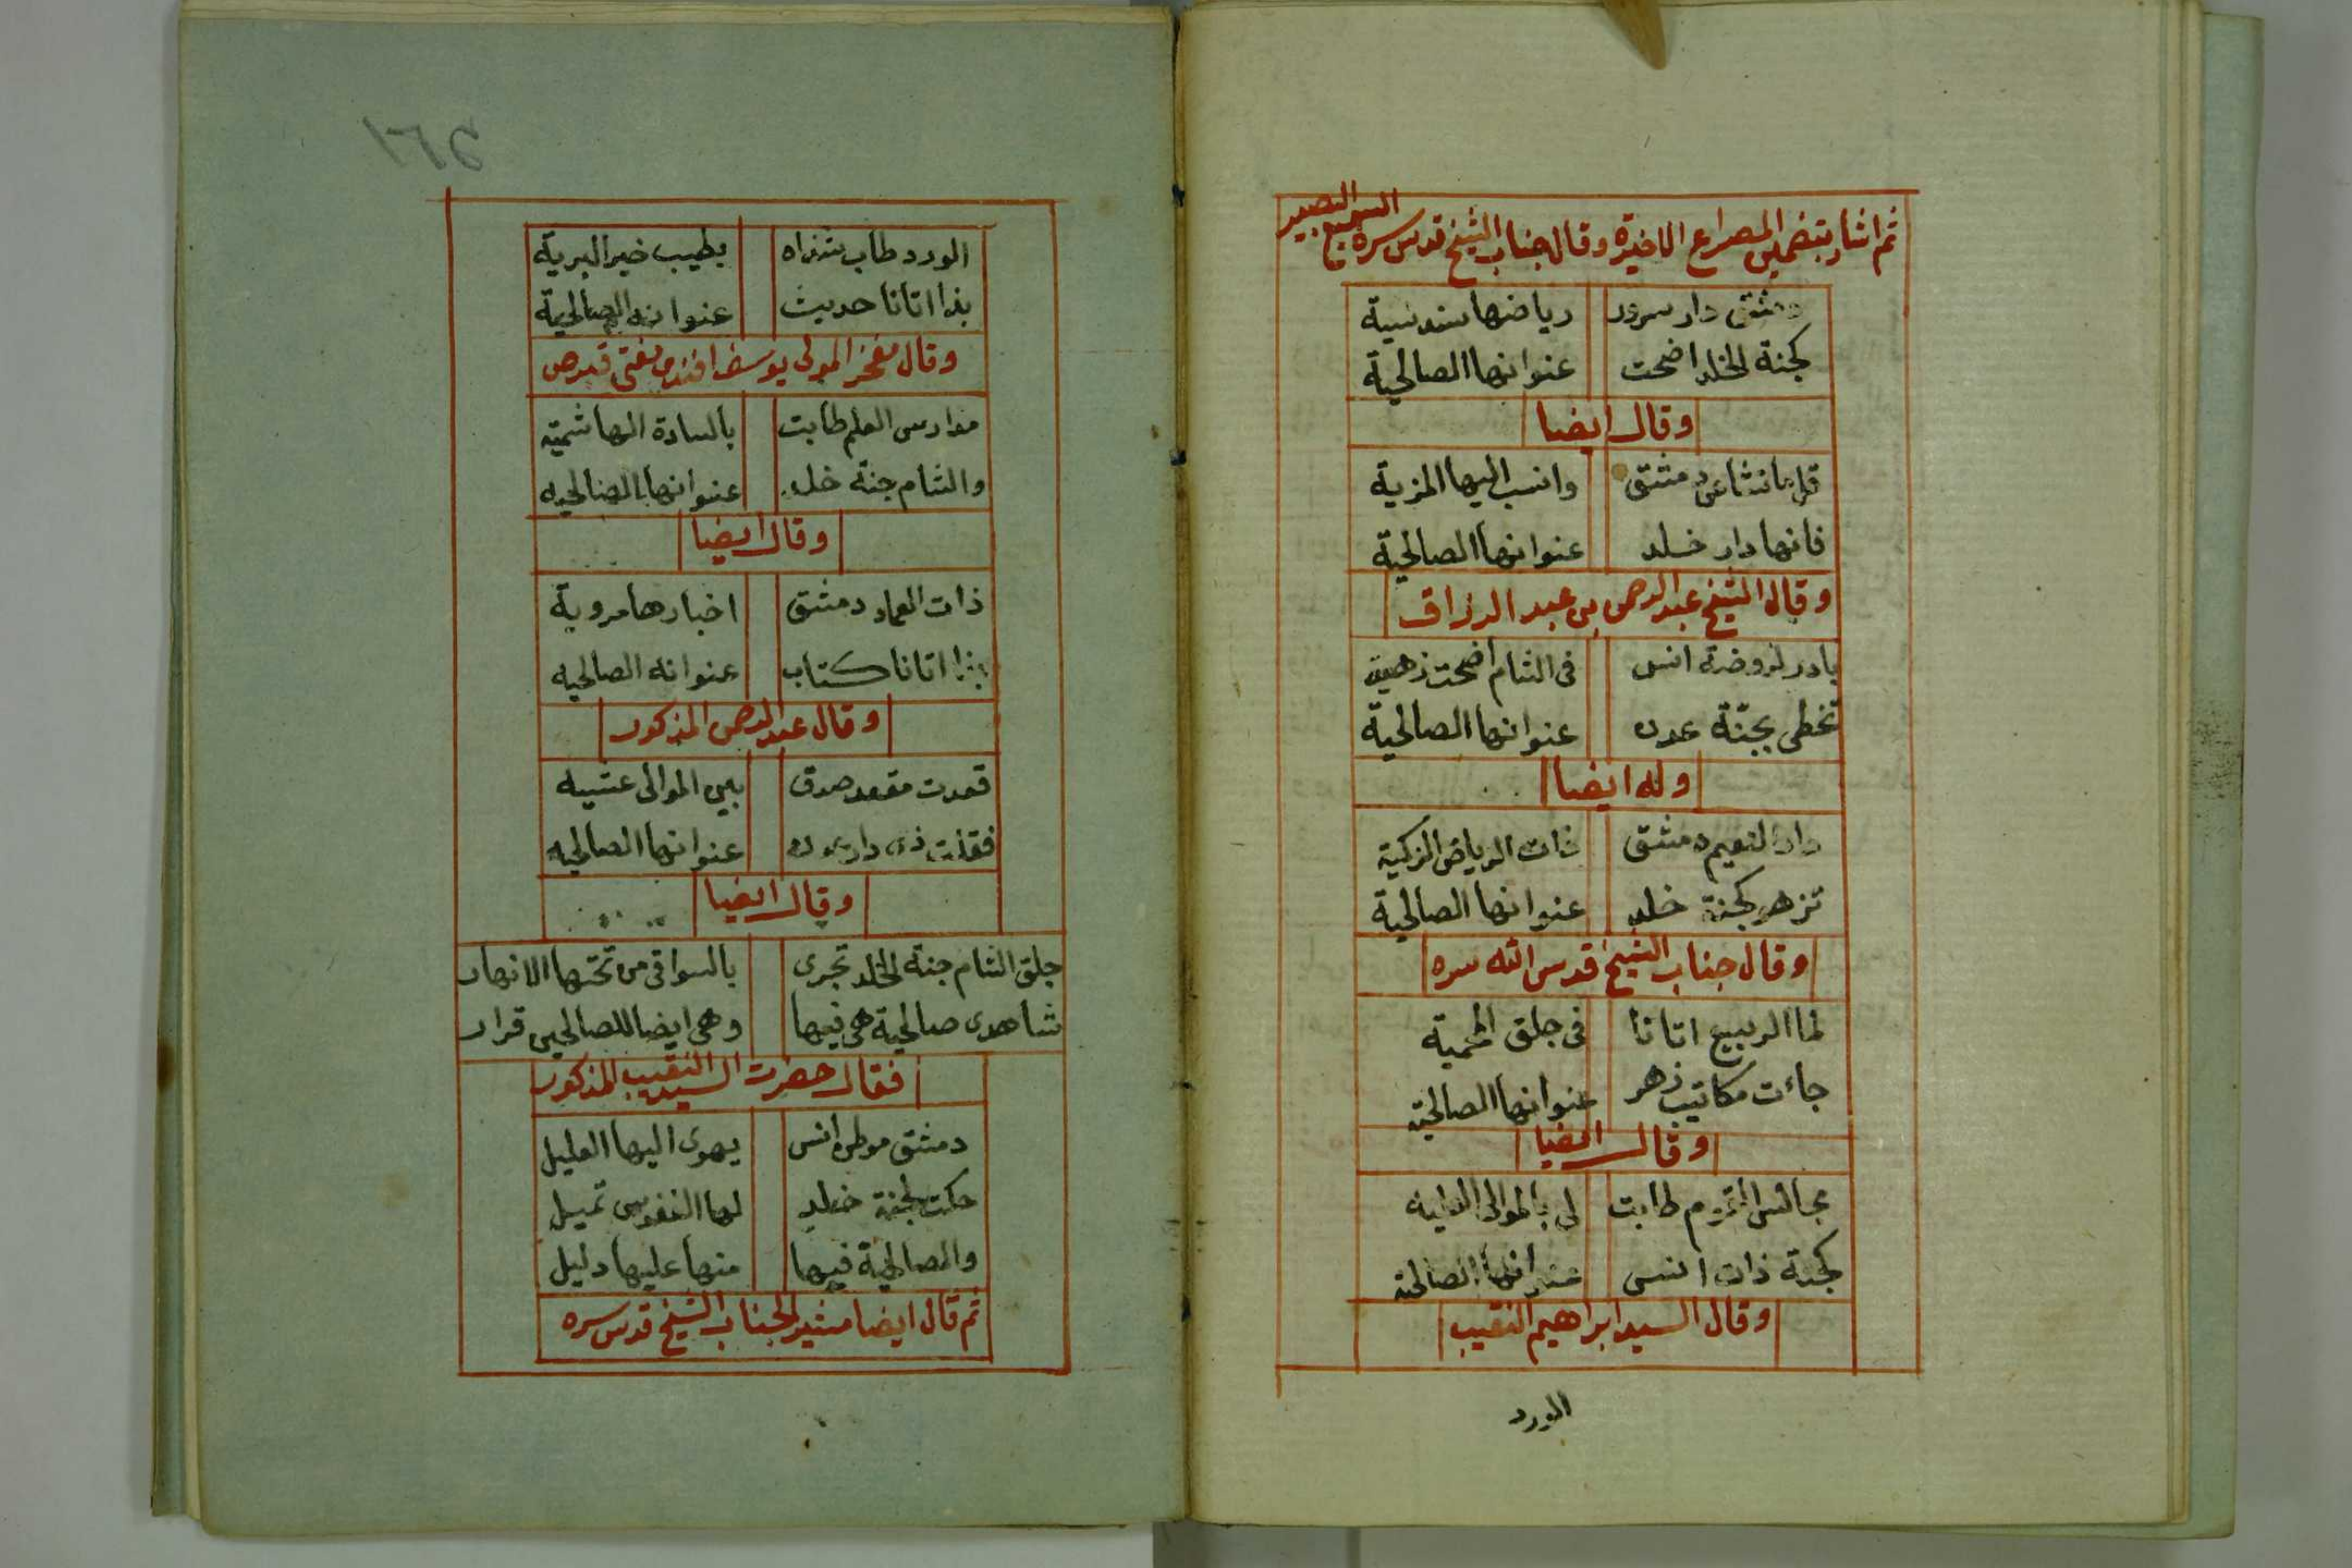 ثم اشار بتضمين المصراع الاخيرة وقال جناب الشيخ قدس سره السميع البصير
دمشق دار سرور رياضها سندسية
كجنة الخلد اضحت عنوانها الصالحية
وقال ايضا
قل ما تشا عن دمشق وانسب اليها المزية
فانها دار خلد عنوانها الصالحية
وقال الشيخ عبد الرحمن بن عبد الرزاق
بادر لروضة انس في الشام اضحت زهية
تحظى بجنّة عدن عنوانها الصالحية
وله ايضا
دار النعيم دمشق ذات الرياض الزكية
تزهو كجنة خلد عنوانها الصالحية
وقال جناب الشيخ قدس الله سره
لما الربيع اتانا في جلق المحمية
جاءت مكاتيب زهر عنوانها الصالحية
وقال ايضا
مجالس طابت لي بالموالى العليه
كجنة ذات انس عنوانها الصالحية
وقال السيد ابراهيم النقيب
الورد
١٦٤
الورد طاب شذاه بطيب خير البرية
بذا اتانا حديث عنوانه الصالحية
وقال مفخر المولى يوسف افندى مفتى قبرص
مدارس العلم طابت بالسادة الهاشمية
والشام جنة خلد عنوانها الصالحيه
وقال ايضا
ذات العماد دمشق اخبارها مروية
بذا اتانا كتاب عنوانه الصالحيه
وقال عبد الرحمن المذكور
قعدت مقعد صدق بين الموالى عشيه
فقلت ذى دار عدن عنوانها الصالحيه
وقال ايضا
جلق الشام جنة الخلد تجرى بالسواقى من تحتها الانهار
شاهدى صالحية هى فيها وهى ايضا للصالحين قرار
فقال حضرت السيد النقيب المذكور
دمشق موطن انس يهوى اليها العليل
حكت لجنة خلد لها النفوس تميل
والصالحية فيها منها عليها دليل
ثم قال ايضا مشيرا لجناب الشيخ قدس سره